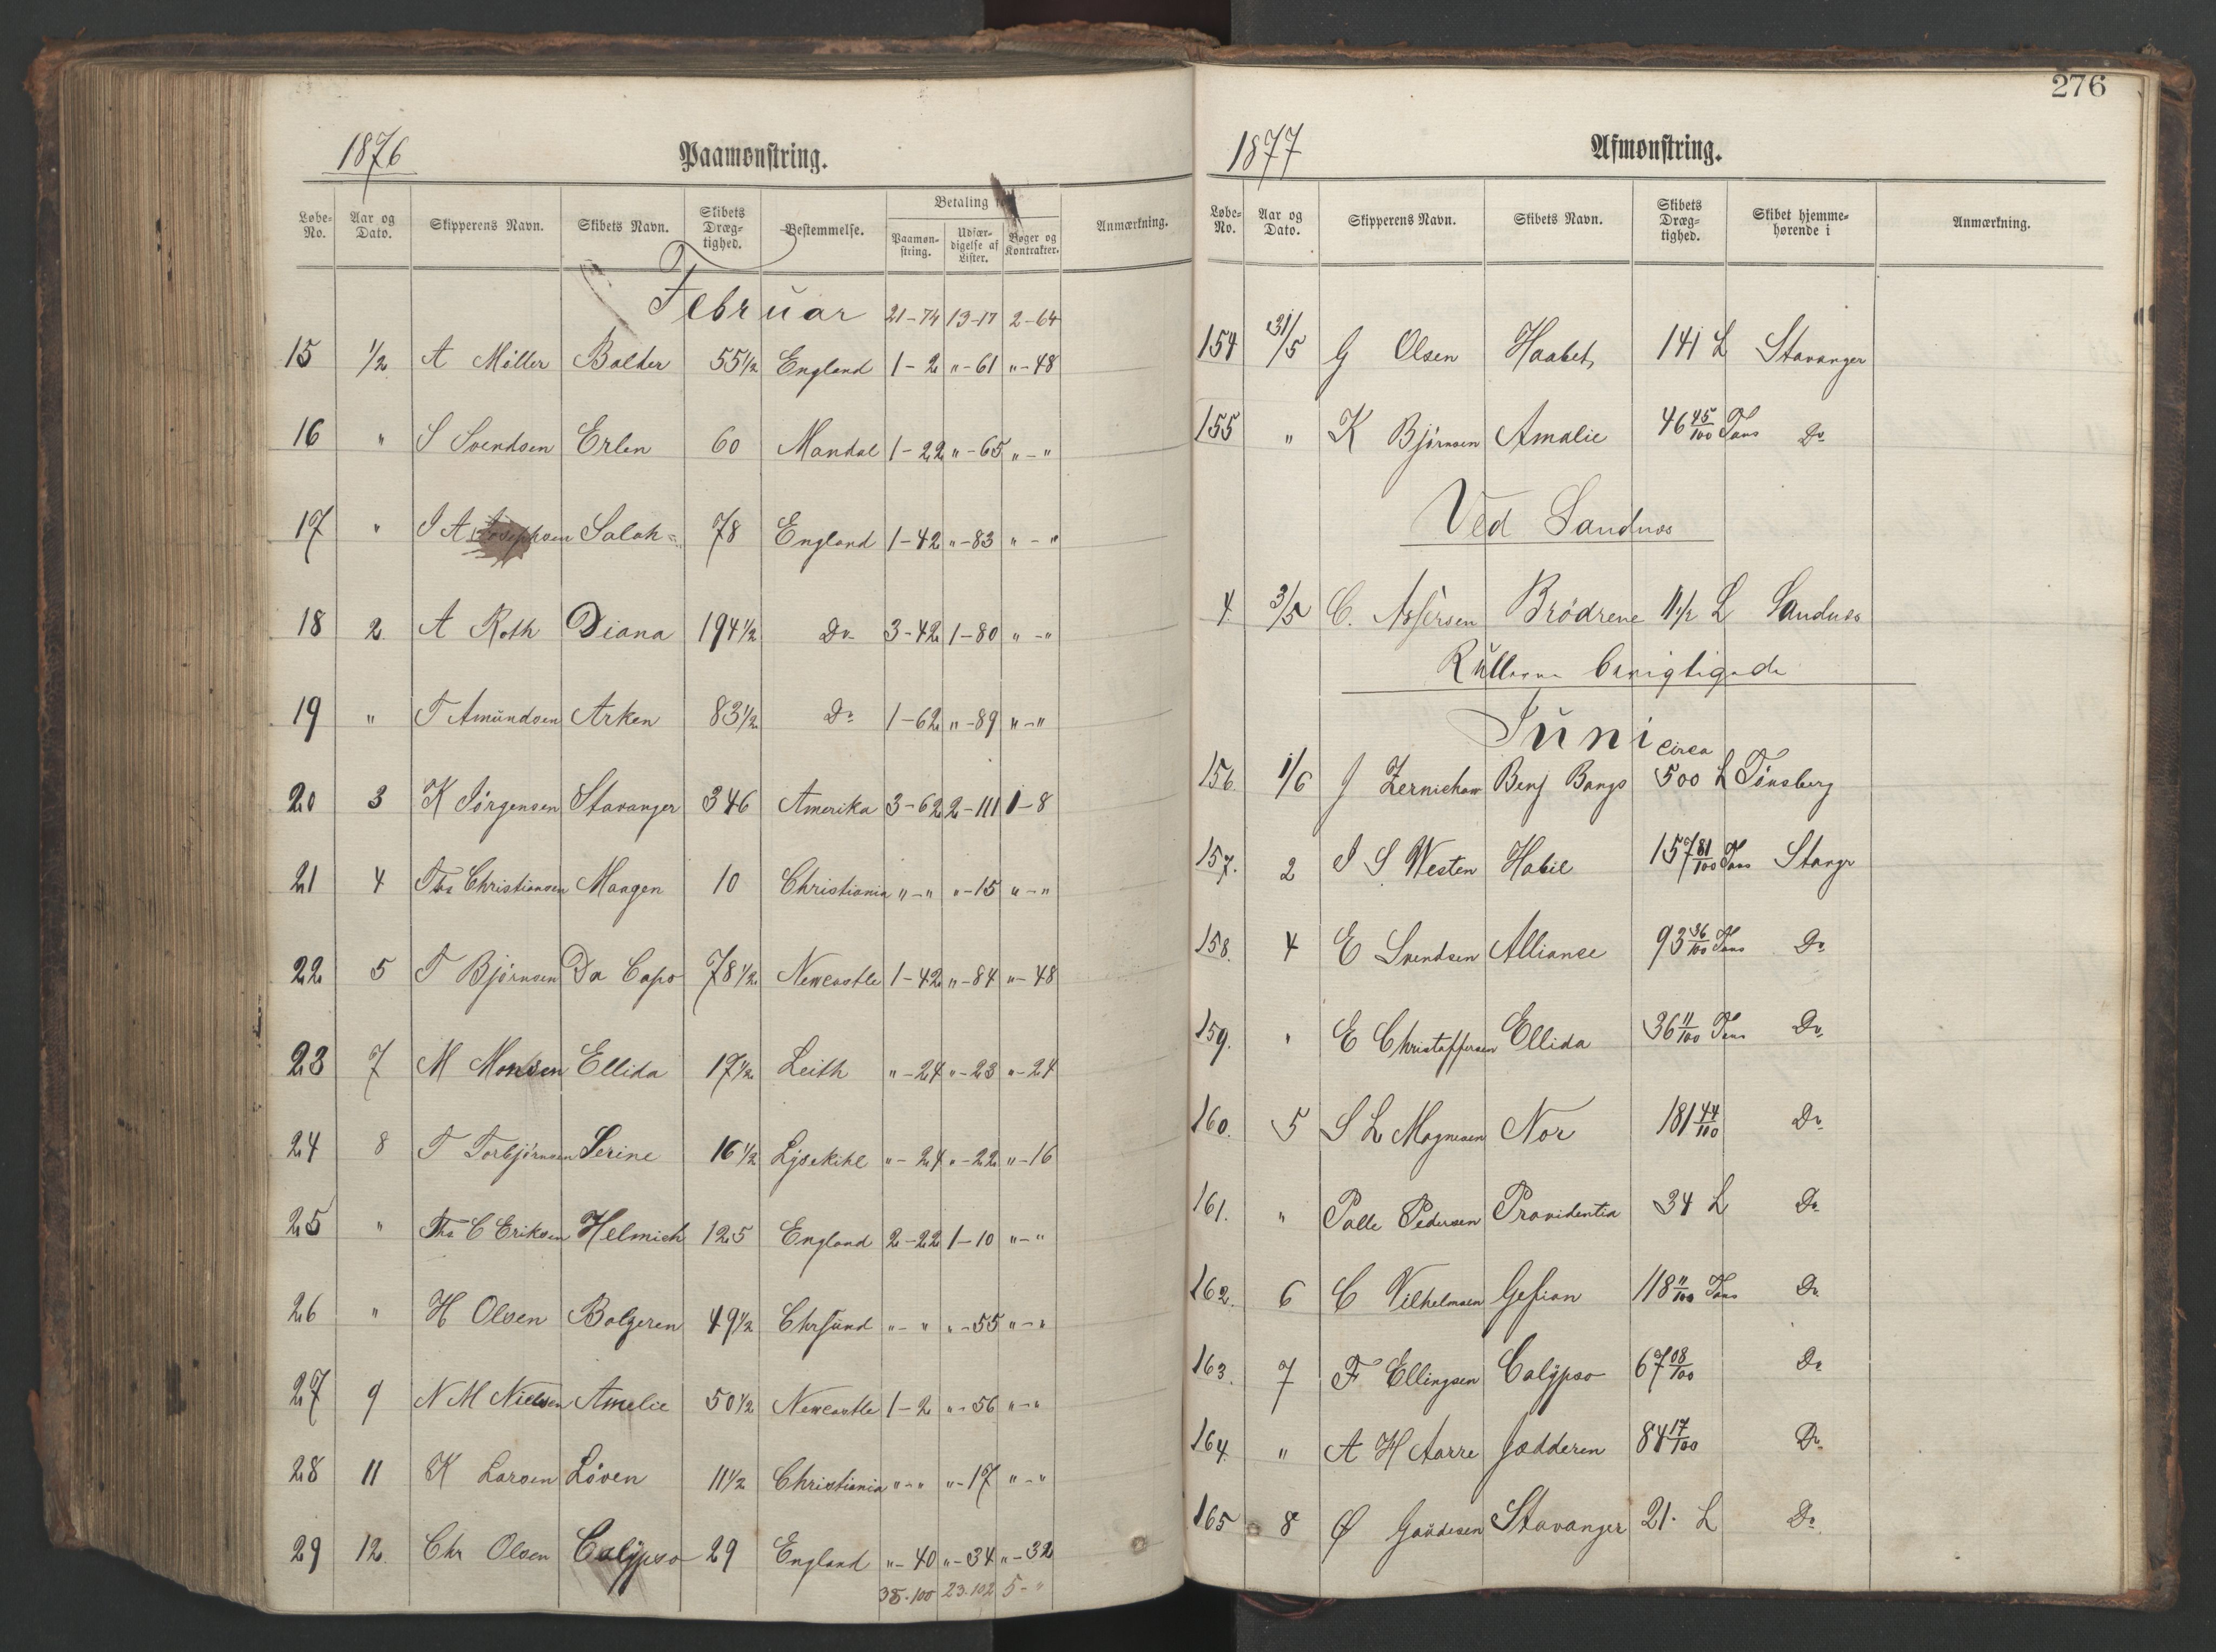 1876 Paamønstring.
Løbe-No. Aar og Dato. Skipperens Navn. Skibets Navn. Skibets Dræg-tighed. Bestemmelse. Betaling Paamøn-string. Udfær-digelse af Lister. Bøger og Kontrakter. Anmærkning.
Februar 21-74 13-17 2-64
15 1/2 A Møller Balder 55 1/2 England 1-2 "-61 "-48
16 " S Svendsen Erlen 60 Mandal 1-22 "-65 "-"
17 " I A Josephsen Salah 78 England 1-42 "-83 "-"
18 2 A Roth Diana 194 1/2 Do 3-42 1-80 "-"
19 " T Amundsen Arken 83 1/2 Do 1-62 "-89 "-"
20 3 K Jörgensen Stavanger 346 Amerika 3-62 2-111 1-8
21 4 Ths Christiansen Maagen 10 Christiania "-" "-15 "-"
22 5 T Bjørnsen Da Capo 78 1/2 Newcastle 1-42 "-84 "-48
23 7 M Monsen Ellida 17 1/2 Leith "-24 "-23 "-24
24 8 T Torbjørnsen Serine 16 1/2 Lysekihl "-24 "-22 "-16
25 " Ths C Eriksen Helmich 125 England 2-22 1-10 "-"
26 " H Olsen Bolgeren 49 1/2 Chrsund "-" "-55 "-"
27 9 N M Nielsen Amelie 50 1/2 Newcastle 1-2 "-56 "-"
28 11 K Larsen Löven 11 1/2 Christiania "-" "-17 "-"
29 12. Chr Olsen Calypso 29 England "-40 "-34 "-32
38-100 23-102 5-"
276
1877 Afmønstring.
Løbe-No. Aar og Dato. Skipperens Navn. Skibets Navn. Skibets Dræg-tighed. Skibet hjemme-hørende i Anmærkning.
154 31/5 G Olsen Haabet 141 L Stavanger
155 " K Bjørnsen Amalie 46 45/100 Tons Do
Ved Sandnes
4 3/5 C. Assersen Brödrene 11 1/2 L Sandnes
Rullerne berigtigede
Juni
156. 1/6 J Benj Bangs circa 500 L Tönsberg
157. 2 I S Westen Habil 157 81/100 Tons Stangr
158. 4 E Svendsen Alliance 93 36/100 Tons Do
159. " E Christoffersen Ellida 36 11/100 Tons Do
160. 5 S L Magnesen Nor 181 44/100 Do
161. " Palle Pedersen Providentia 34 L Do
162. 6 C Vilhelmsen Gefion 118 11/100 Tons Do
163. 7 F Ellingsen Calypso 67 08/100 Do
164. " A H Aarre Jædderen 84 17/100 Do
165 8 Ø Gaudesen Stavanger 21. L Do